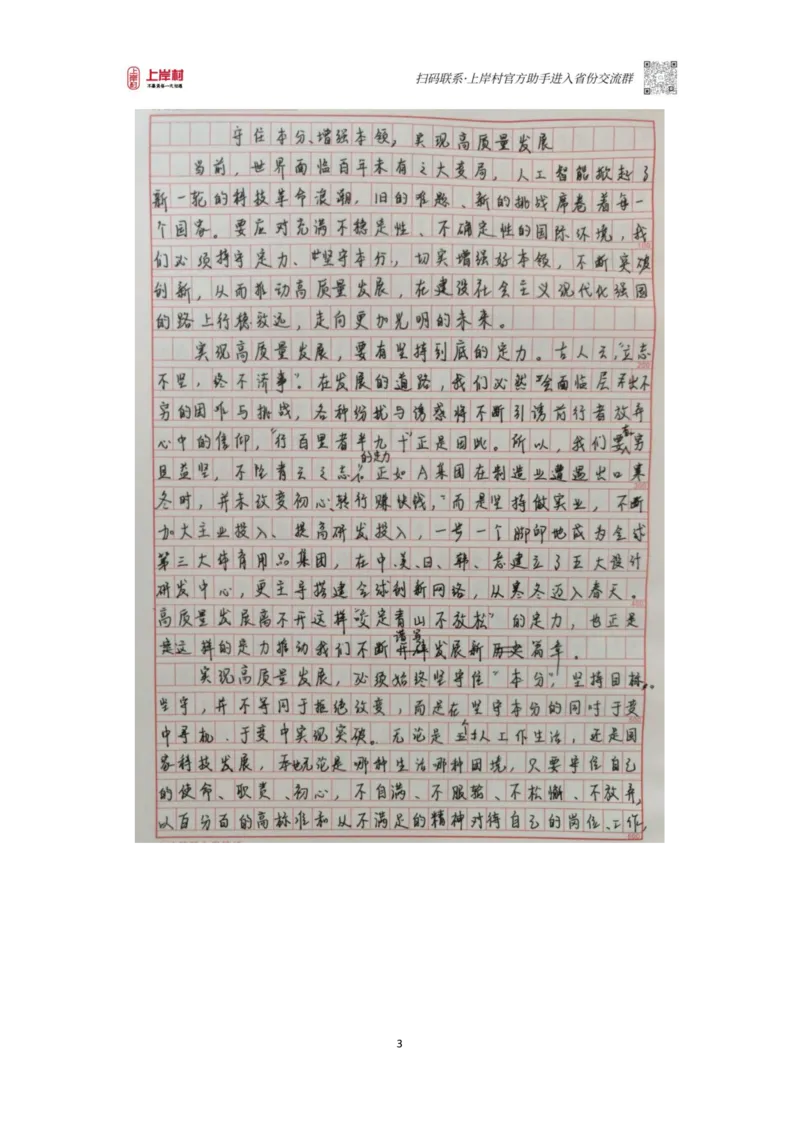 上岸村
不辜负每一代沟通
扫码联系·上岸村官方助手进入省份交流群
守住本分、增强本领，实现高质量发展
当前，世界面临百年未有之大变局，人工智能掀起了
新一轮的科技革命浪潮，旧的难题、新的挑战席卷着每一
个国家。要应对充满不稳定性、不确定性的国际环境，我
们必须持守定力、坚守本分，切实增强好本领，不断突破
创新，从而推动高质量发展，在建设社会主义现代化强国
的路上行稳致远，走向更加光明的未来。
实现高质量发展，要有坚持到底的定力。古人云，“立志
不坚，终不济事”。在发展的道路，我们必然会面临层出不
穷的困难与挑战，各种纷扰与诱惑将不断引诱前行者放弃
心中的信仰，“行百里者半九十”正是因此。所以，我们要有“穷
且益坚，不坠青云之志”的定力。正如A集团在制造业遭遇出口寒
冬时，并未改变初心、转行赚快钱，而是坚持做实业，不断
加大主业投入、提高研发投入，一步一个脚印地成为全球
第三大体育用品集团，在中、美、日、韩、意建立了五大设计
研发中心，更主导搭建全球创新网络，从寒冬迈入春天。
高质量发展离不开这样“咬定青山不放松”的定力，也正是
这样的定力推动我们不断谱写发展新历史篇章。
实现高质量发展，必须始终坚守住“本分”，坚持目标。
坚守，并不等同于拒绝改变，而是在坚守本分的同时于变
中寻机、于变中实现突破。无论是个人工作生活，还是国
家科技发展，无论是哪种生活哪种困境，只要守住自己
的使命、职责、初心，不自满、不服输、不松懈、不放弃，
以百分百的高标准和从不满足的精神对待自己的岗位、工作，
3